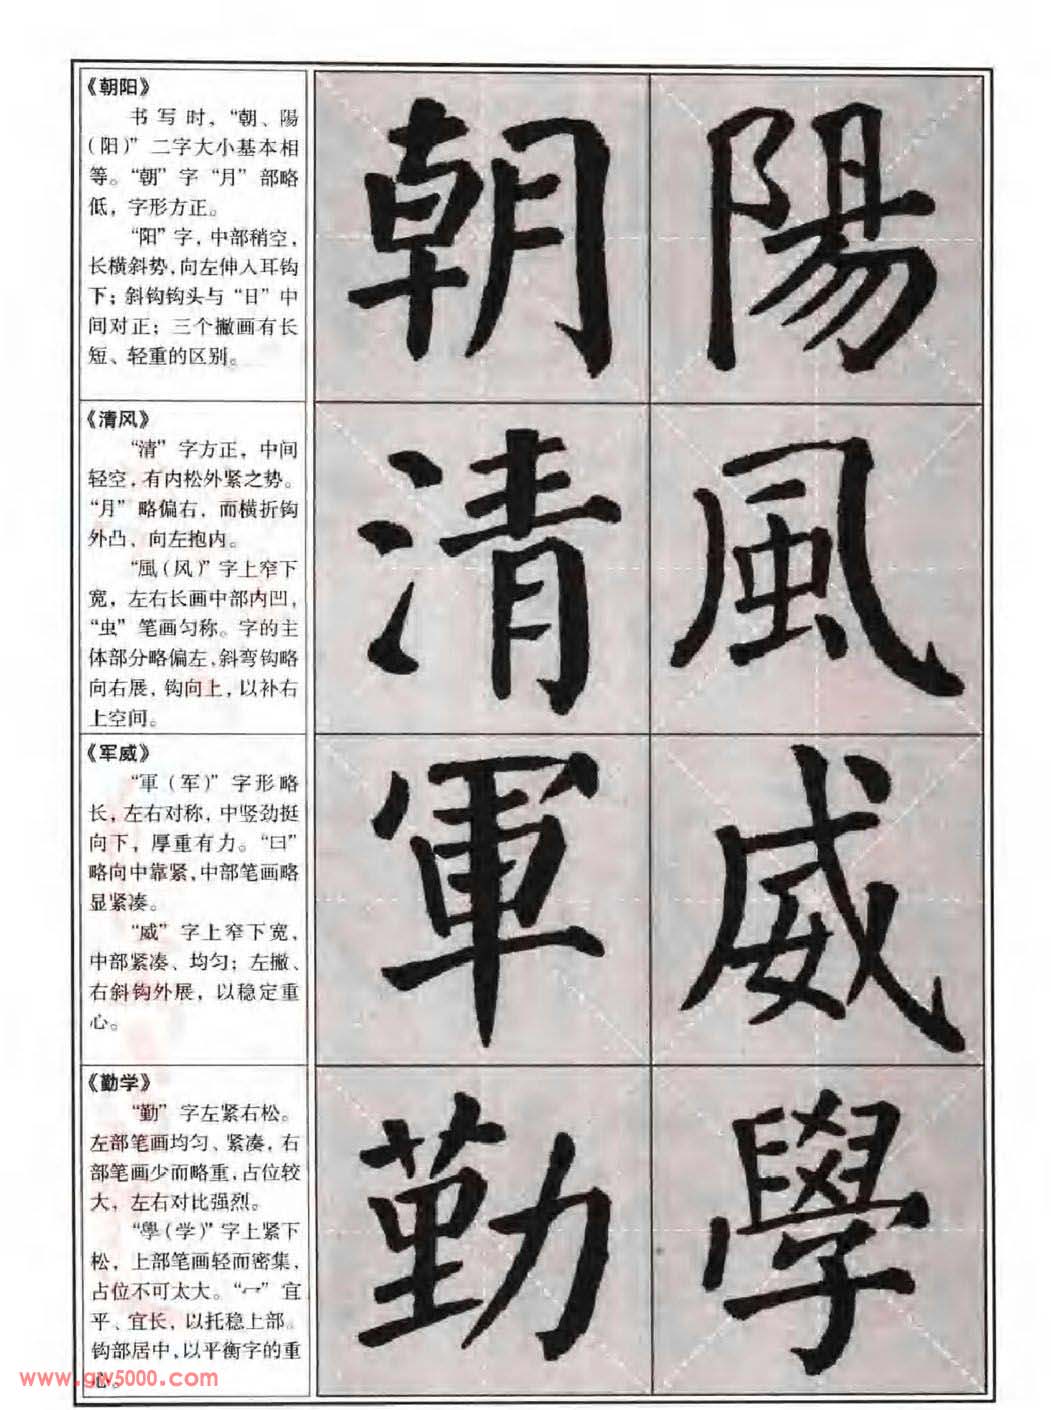 《朝阳》
书写时，“朝、陽
（阳）”二字大小基本相
等。“朝”字“月”部略
低，字形方正。
“阳”字，中部稍空，
长横斜势，向左伸入耳钩
下；斜钩钩头与“日”中
间对正；三个撇画有长
短、轻重的区别。
朝陽
《清风》
“清”字方正，中间
轻空，有内松外紧之势。
“月”略偏右，而横折钩
外凸、向左抱内。
“風（风）”字上窄下
宽，左右长画中部内凹，
“虫”笔画匀称。字的主
体部分略偏左，斜弯钩略
向右展，钩向上，以补右
上空间。
清風
《军威》
“軍（军）”字形略
长，左右对称，中竖劲挺
向下，厚重有力。“曰”
略向中靠紧，中部笔画略
显紧凑。
“威”字上窄下宽，
中部紧凑、均匀；左撇、
右斜钩外展，以稳定重
心。
軍威
《勤学》
“勤”字左紧右松。
左部笔画均匀、紧凑，右
部笔画少而略重，占位较
大，左右对比强烈。
“學（学）”字上紧下
松，上部笔画轻而密集，
占位不可太大。“冖”宜
平、宜长，以托稳上部。
钩部居中，以平衡字的重
心。
勤學
www.gw5000.com